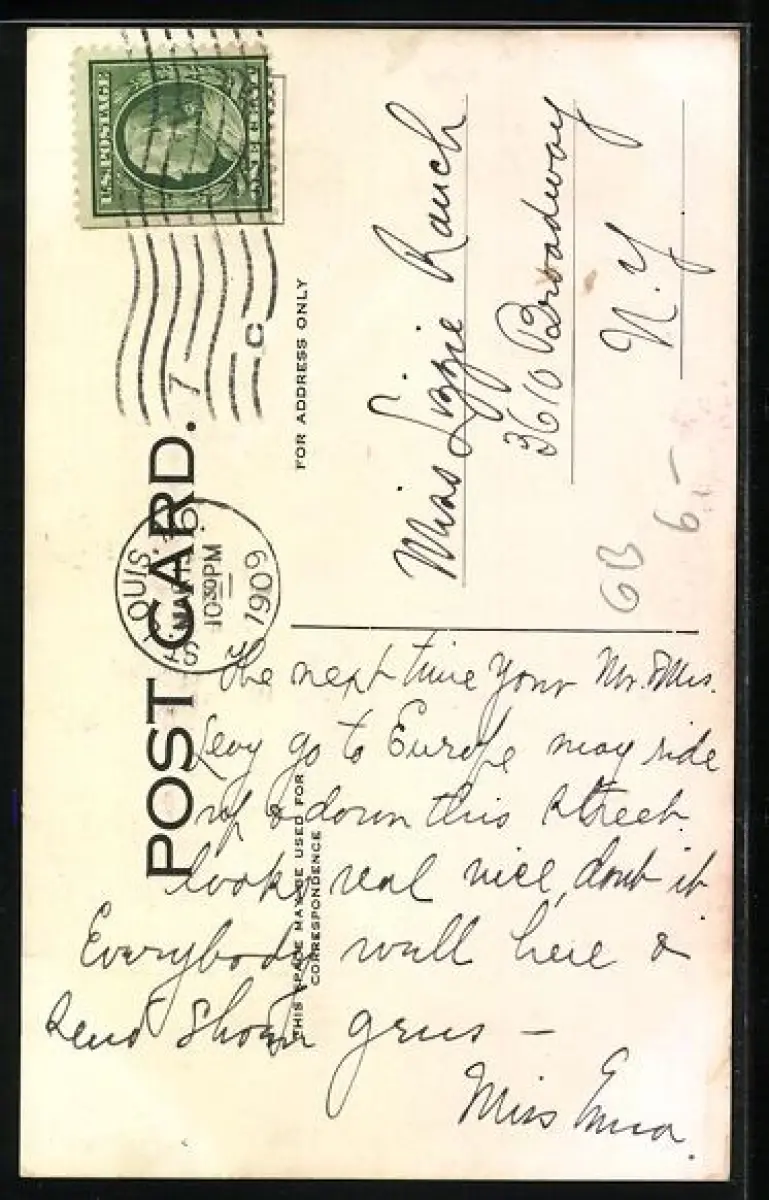 U.S. POSTAGE
ONE CENT
7
C
ST. LOUIS, MO.
MAR 15
10 30 PM
1909
POST CARD.
FOR ADDRESS ONLY
Miss Lizzie Rauch
3610 Broadway
N. Y
GB
6.-
THIS SPACE MAY BE USED FOR
CORRESPONDENCE
The next time your Mr. & Mrs.
Levy go to Europe may ride
up & down this street.
looks real nice, dont it
Everybody well here &
send
Miss Emma.